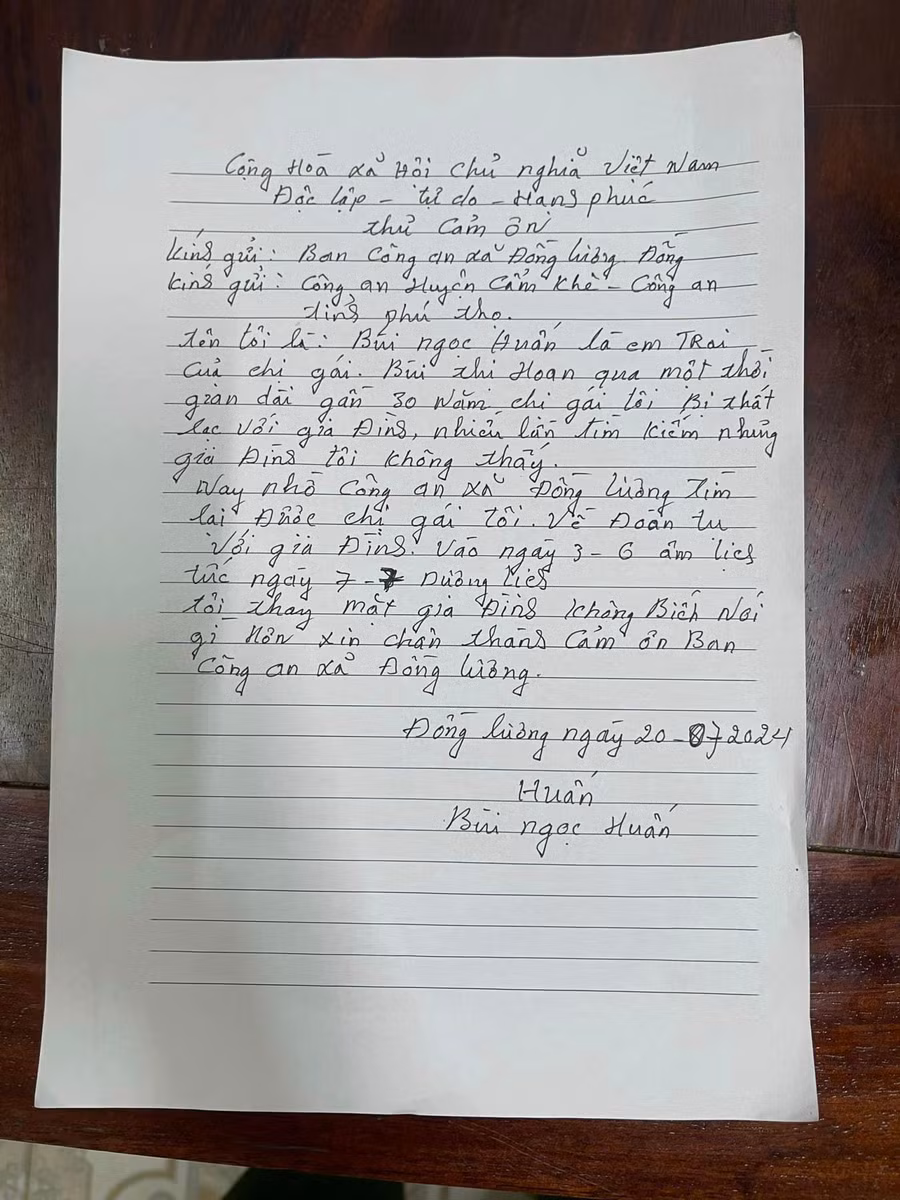 Cộng Hoà xả Hôi chủ nghiả Việt Nam
Độc lập - tự do - Hạnh phúc
thử Cảm ơn
kính gửi: Ban Công an xả Đồng lương Đồng
kính gửi: Công an Huyện Cẩm Khê - Công an
tỉnh phú thọ.
tên tôi là: Bùi ngọc Huấn là em TRai
Của chi gái. Bùi thi Hoan qua một thời
gian dài gần 30 Năm chi gái tôi Bị thất
lạc với gia Đình, nhiều lần tìm kiếm nhưng
gia Đình tôi không thấy.
Nay nhờ Công an xả Đồng lương Tìm
lai Được chi gái tôi. Về Đoàn tu
với gia Đình. Vào ngày 3-6 âm lịch
tức ngày 7-7 Dương lịch
tôi thay mặt gia Đình không Biết Nói
gì Hơn xin chân thành Cảm ơn Ban
Công an xả Đồng lương.
Đồng lương ngày 20-07-2024
Huấn
Bùi ngọc Huấn